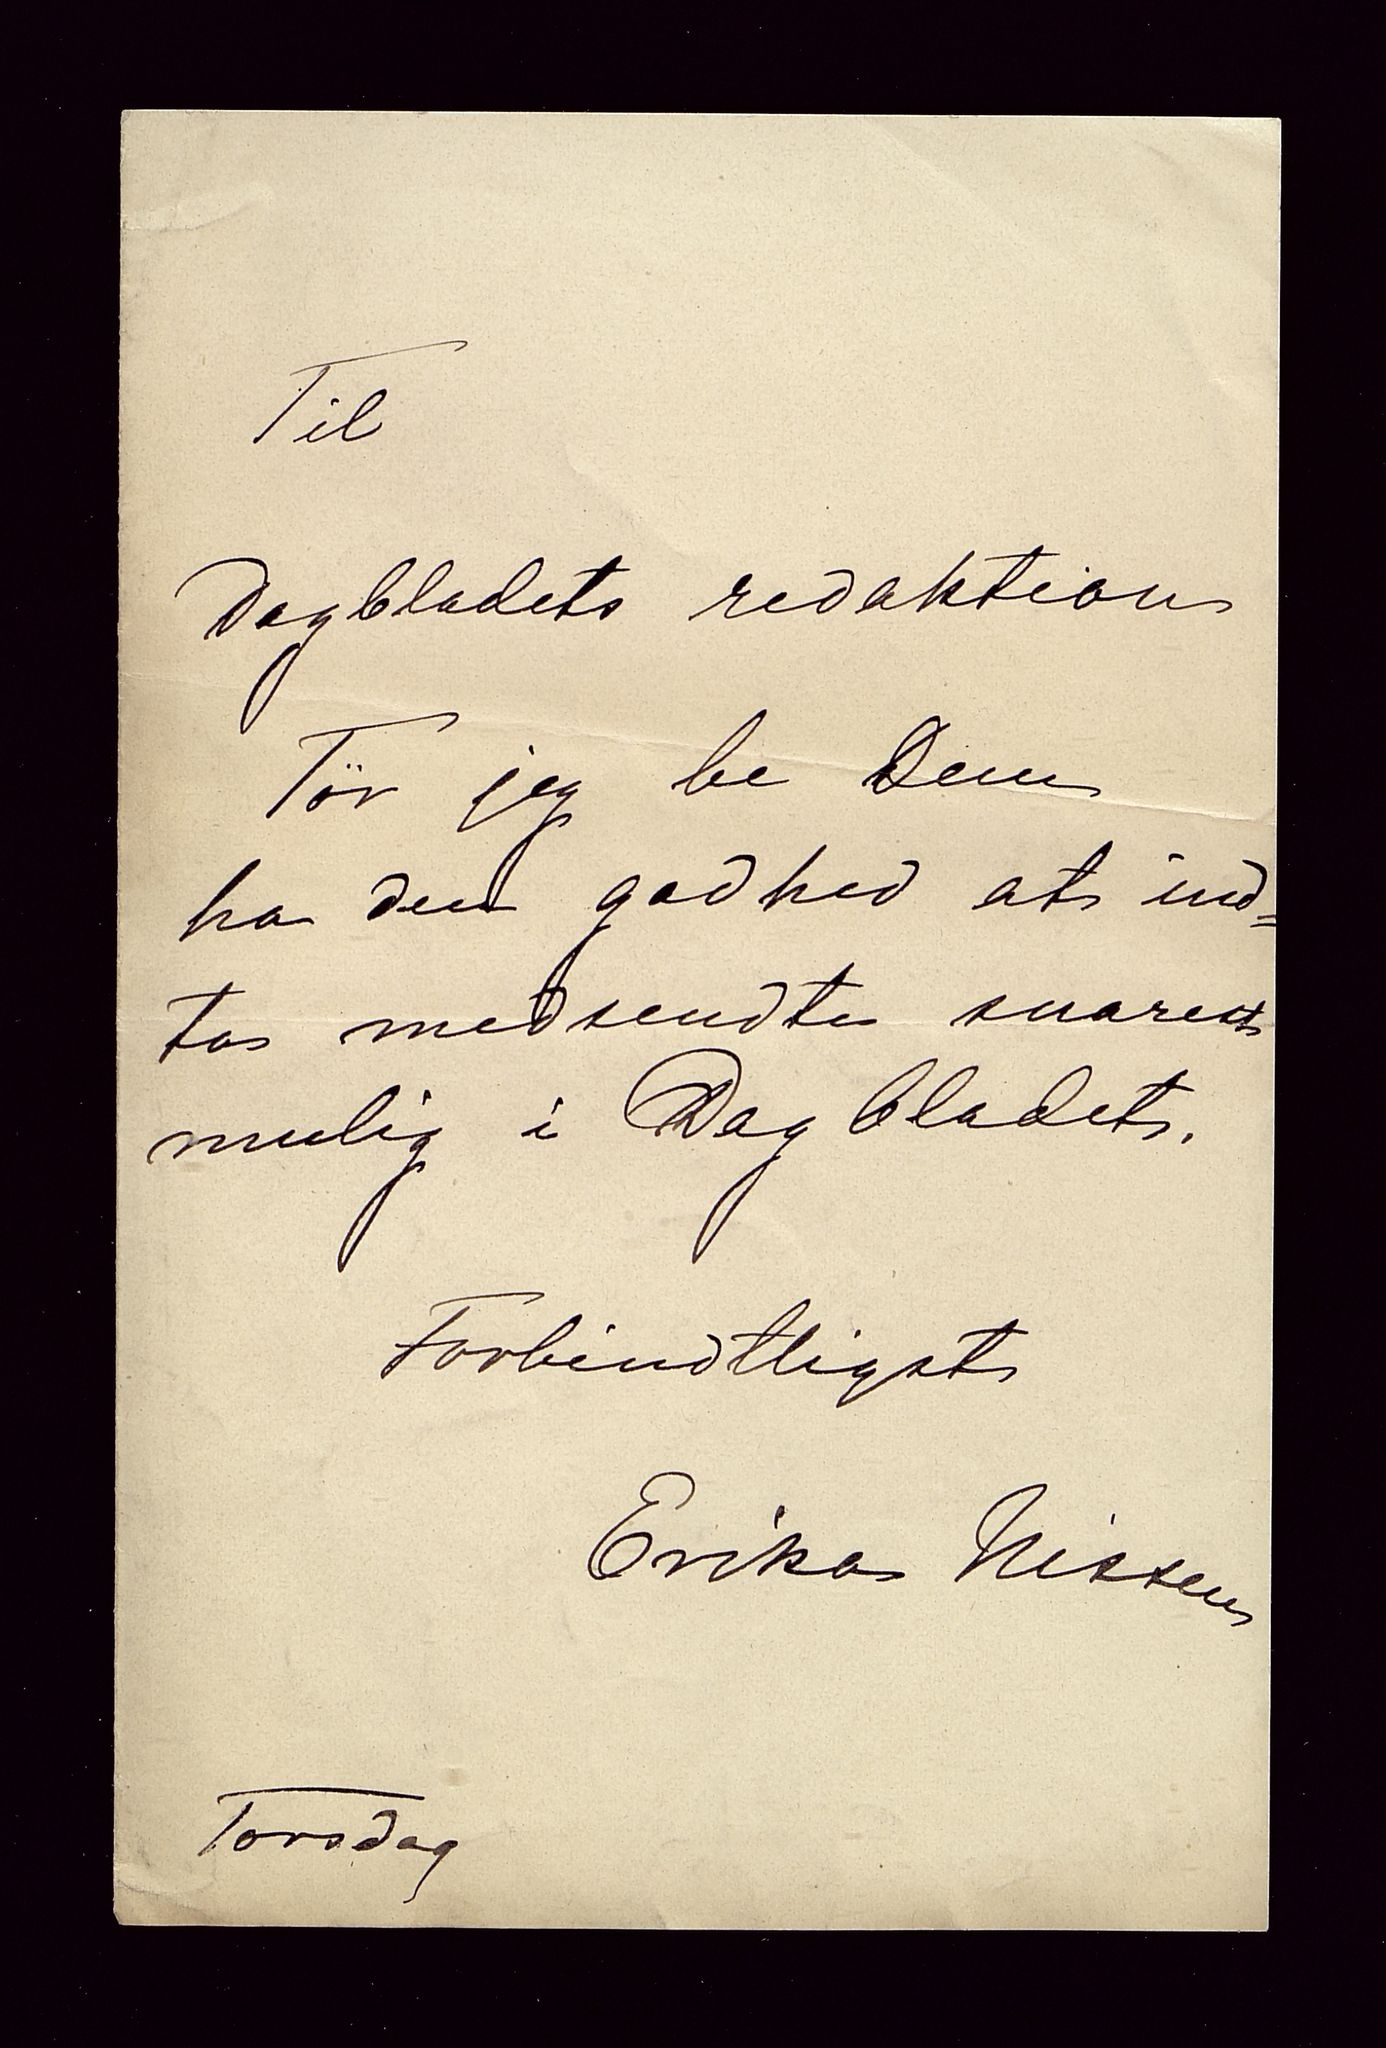 Til
Dagbladets redaktion
Tör jeg be Dem
ha den godhed at ind=
ta medsendte snarest
mulig i Dagbladet.
Forbindtligst
Erika Nissen
Torsdag